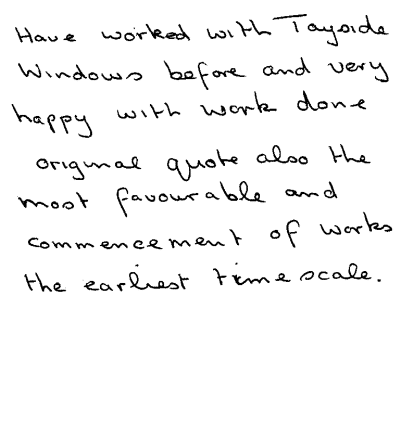 Have worked with Tayside
Windows before and very
happy with work done
original quote also the
most favourable and
commencement of works
the earliest timescale.